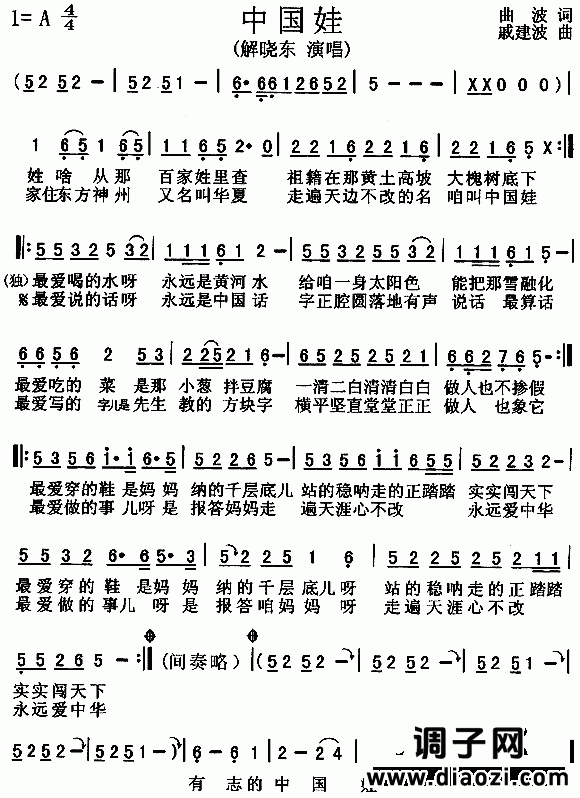 1=A 4/4 中国娃 曲波 词
(解晓东 演唱) 戚建波 曲
(52 52 - | 52 51 - | 6·6612652 | 5 - - - | XX 0 0 0) |
1 65 1 65 | 1165 2·0 | 22162216 | 22165 X :||
姓啥从那 百家姓里查 祖籍在那黄土高坡 大槐树底下
家住东方神州 又名叫华夏 走遍天边不改的名 咱叫中国娃
||: 55325 32 | 11161 2 - | 5532552 | 11152·5 - |
(独)最爱喝的水呀 永远是黄河水 给咱一身太阳色 能把那雪融化
最爱说的话呀 永远是中国话 字正腔圆落地有声 说话 最算话
6656 2 53 | 2 25 216 - | 65252525 | 6 62765·- :||
最爱吃的 菜 是那 小葱 拌豆腐 一清二白清清白白 做人也不掺假
最爱写的 字儿是先生 教的 方块字 横平坚直堂堂正正 做人 也象它
||: 5356 i·i 365· | 52265 - | 5356iii655 | 52232 - |
最爱穿的鞋是妈妈 纳的千层底儿 站的稳呐走的正踏踏 实实闯天下
最爱做的事儿呀是 报答妈妈走 遍天涯心不改 永远爱中华
5532 6·365·3 | 225251 6 | 552522511 |
最爱穿的 鞋 是妈妈 纳的千层底儿呀 站的稳呐走的正踏踏
最爱做的事儿 呀是 报答咱妈妈 呀 走遍天涯心不改
55265 - :|| (间奏略) | (52 52 - | 52 52 - | 52 51 - |
实实闯天下
永远爱中华
5252 - | 52 51 - ) | 6 - 61 | 2·6 -
有 志的 中 国
调子网
www.diaozi.com